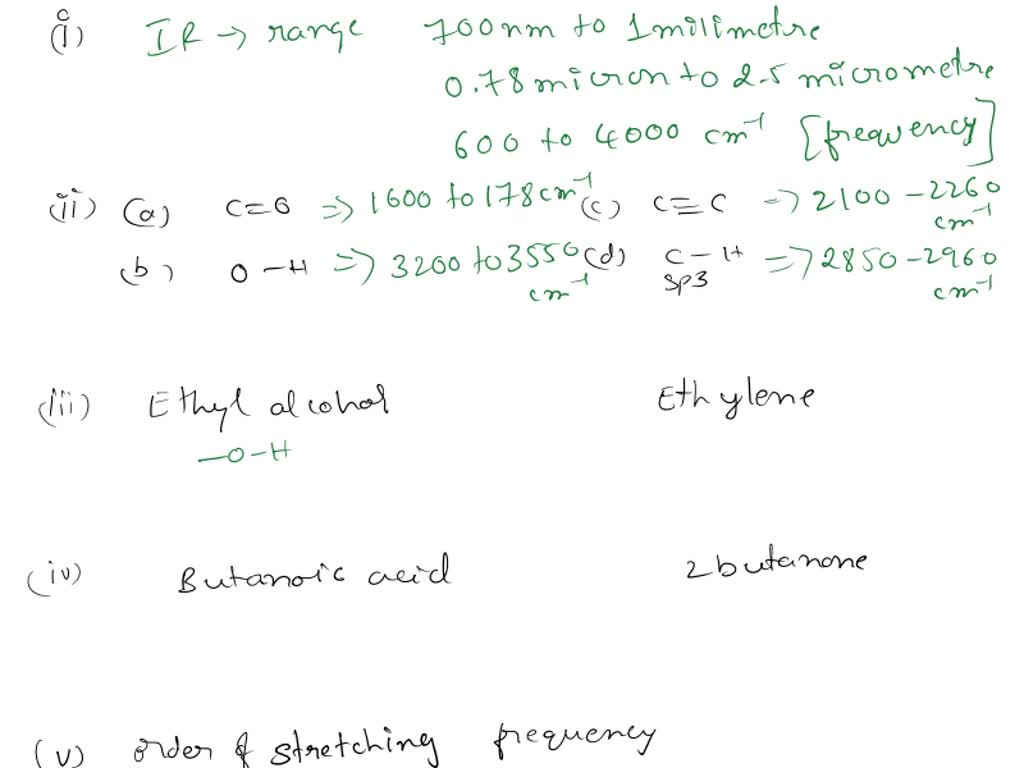 (i) IR → range 700nm to 1milimetre
0.78 micron to 2.5 micrometre
600 to 4000 cm⁻¹ [frequency]
(ii) (a) C=O ⇒ 1600 to 178cm⁻¹ (c) C≡C ⇒ 2100-2260 cm⁻¹
(b) O-H ⇒ 3200 to 3550 cm⁻¹ (d) C-H sp3 ⇒ 2850-2960 cm⁻¹
(iii) Ethyl alcohol Ethylene
-O-H
(iv) Butanoic acid 2butanone
(v) order of stretching frequency